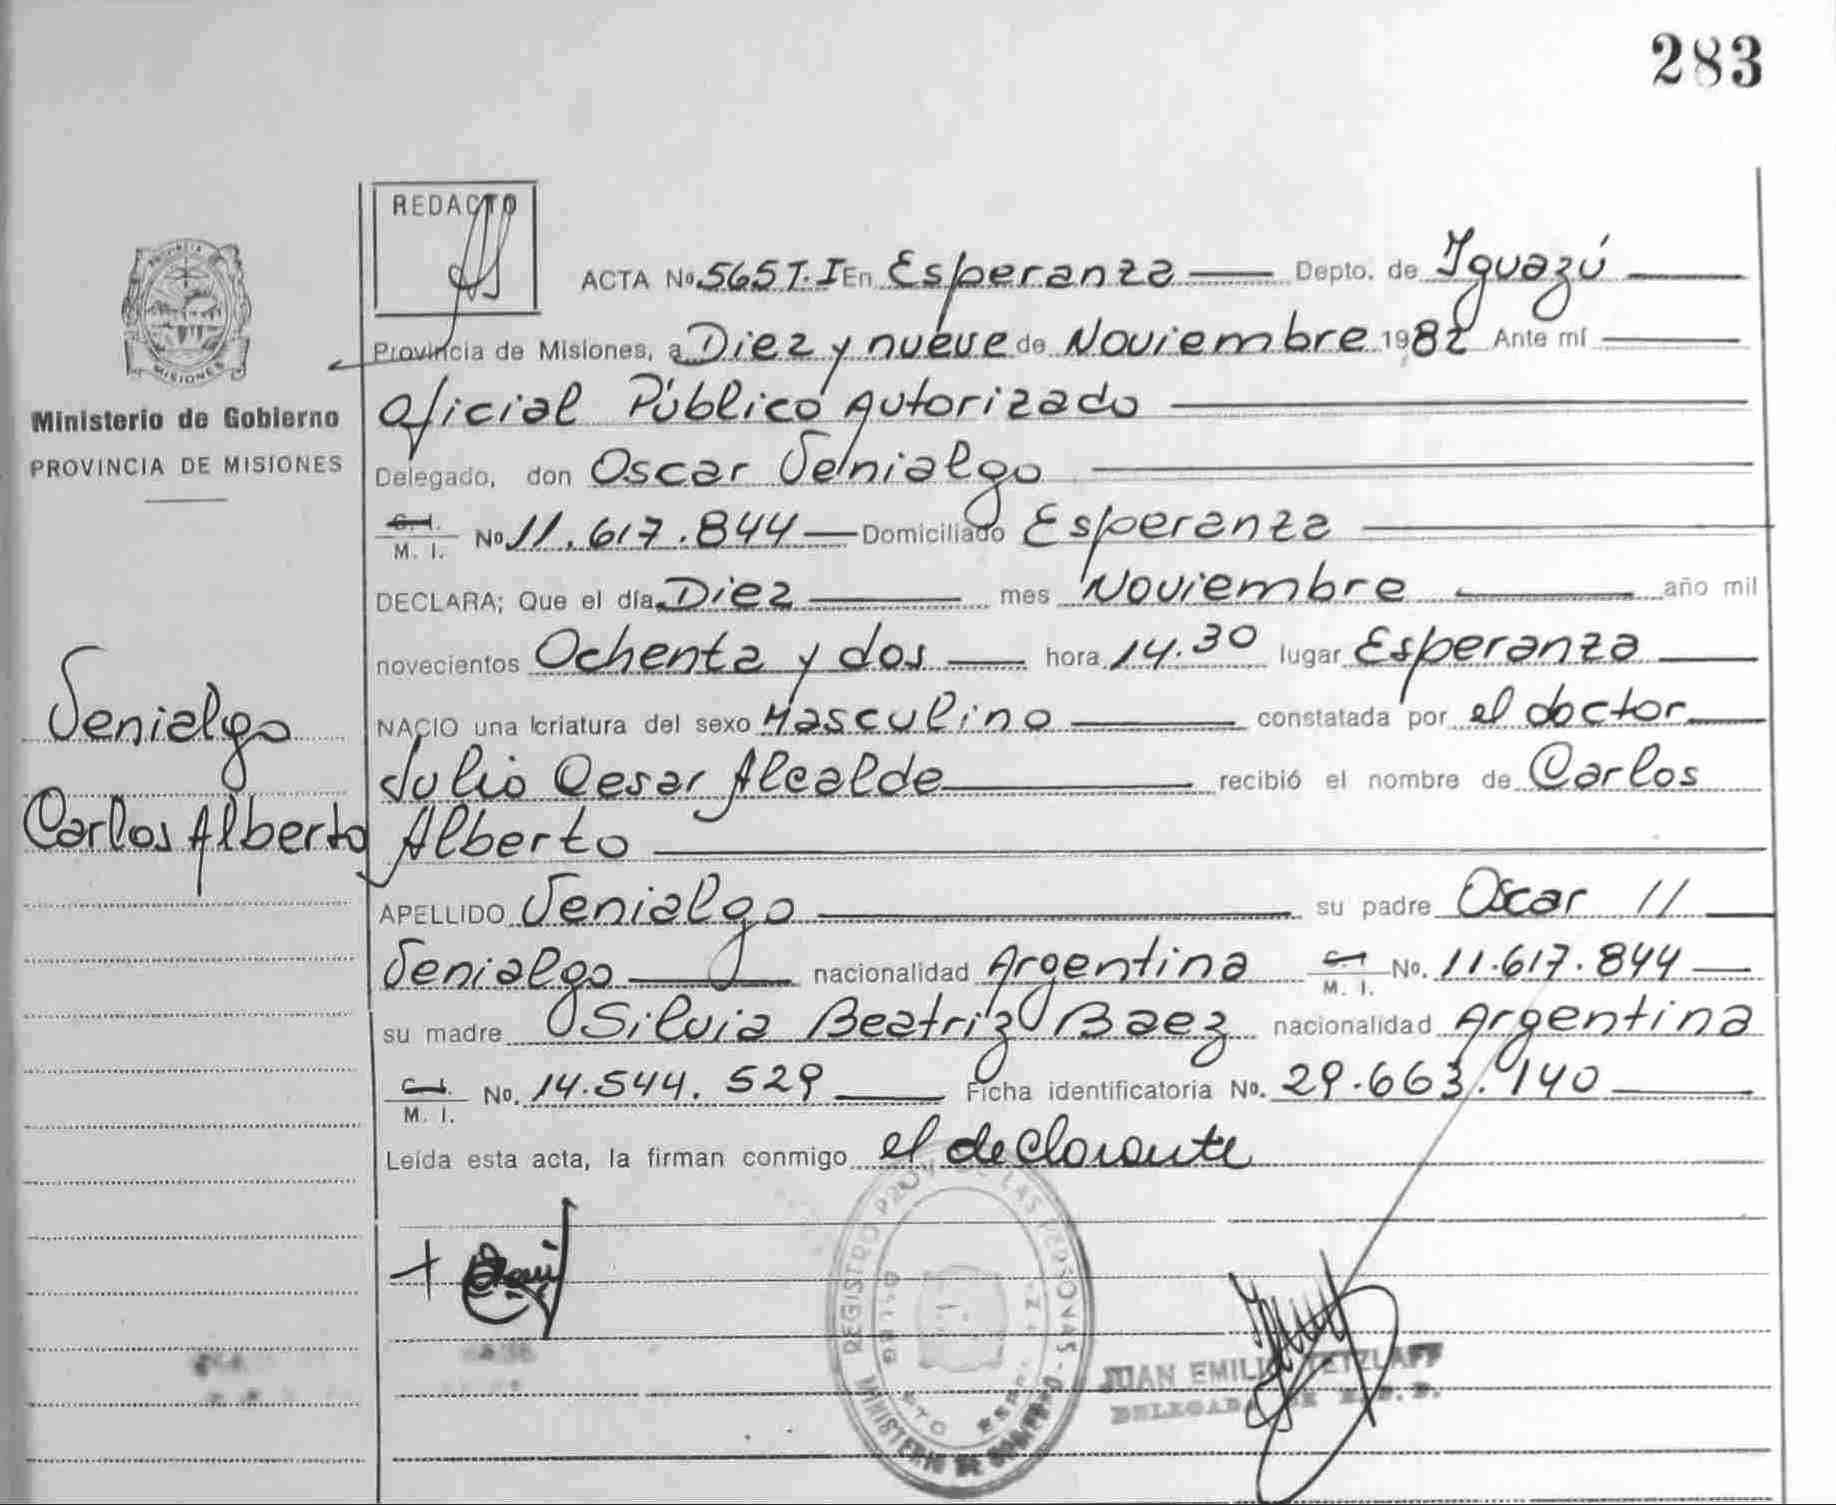 283
REDACTO
ACTA No 565 T. I En Esperanza Depto. de Iguazú
Provincia de Misiones, a Diez y nueve de Noviembre 1982 Ante mí
Oficial Público Autorizado
Delegado, don Oscar Venialgo
C. I. M. I. No 11.617.844 Domiciliado Esperanza
DECLARA; Que el día Diez mes Noviembre año mil
novecientos Ochenta y dos hora 14.30 lugar Esperanza
NACIO una criatura del sexo Masculino constatada por el doctor
Julio Cesar Alcalde recibió el nombre de Carlos
Alberto
APELLIDO Venialgo su padre Oscar //
Venialgo nacionalidad Argentina C. I. M. I. No. 11.617.844
su madre Silvia Beatriz Baez nacionalidad Argentina
C. I. M. I. No. 14.544.529 Ficha identificatoria No. 29.663.140
Leída esta acta, la firman conmigo el declarante
PROVINCIA
MISIONES
Ministerio de Gobierno
PROVINCIA DE MISIONES
Venialgo
Carlos Alberto
REGISTRO PROV. DE LAS PERSONAS - MINISTERIO DE GOBIERNO
JUAN EMILIO TETZLAFF